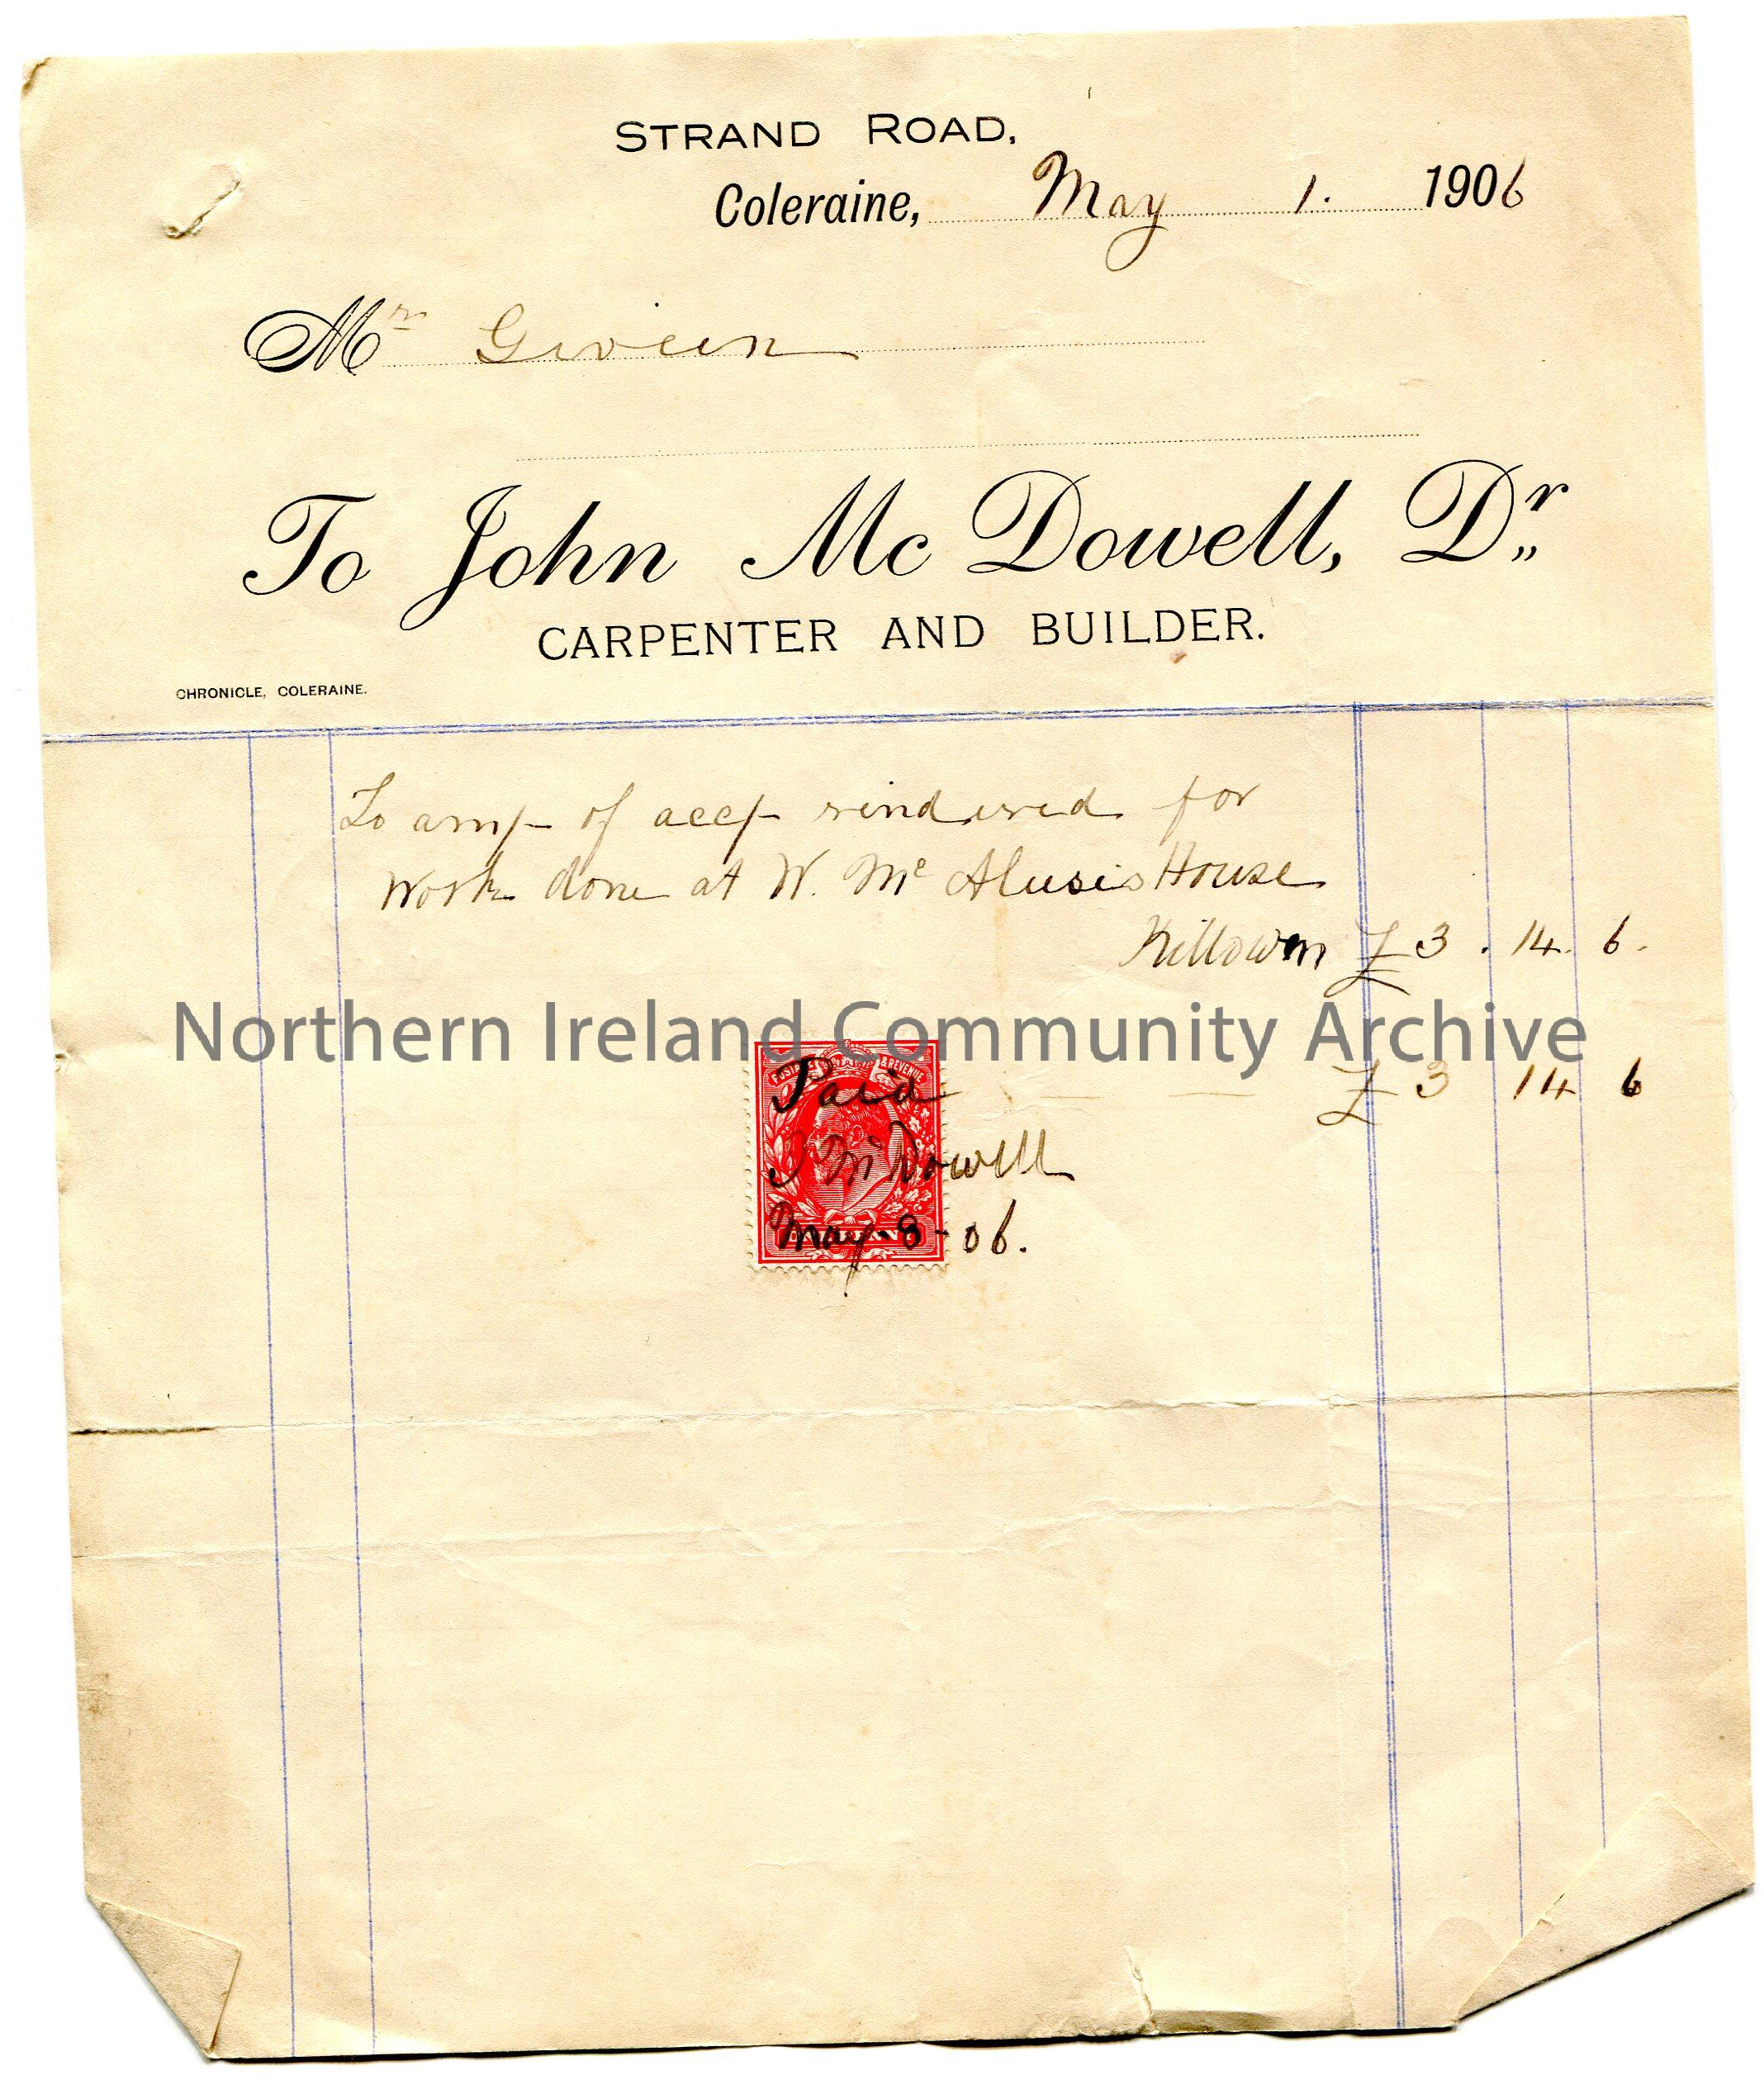 STRAND ROAD,
Coleraine, May 1. 1906
Mr Giveen
To John Mc Dowell, Dr.,
CARPENTER AND BUILDER.
CHRONICLE, COLERAINE.
To amt of acct rindered for
Work done at W. Mc House
Killowen £3 . 14. 6.
Northern Ireland Community Archive
£3 14 6
POSTAGE & REVENUE
Paid
J McDowell
May-8-06.